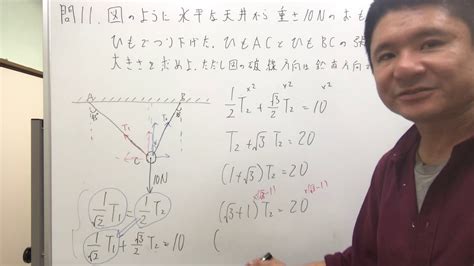 問11. 図のように水平な天井から重さ10Nのおも
ひもでつり下げた。ひもACとひもBCの張
大きさを求めよ。ただし図の破線方向は鉛直方向で
A
B
45°
T₁
T₂
C
10N
1/√2 T₁ = 1/2 T₂
1/√2 T₁ + √3/2 T₂ = 10
×2 ×2 ×2
1/2 T₂ + √3/2 T₂ = 10
T₂ + √3 T₂ = 20
(1+√3) T₂ = 20
×(√3-1) ×(√3-1)
(√3+1) T₂ = 20
(